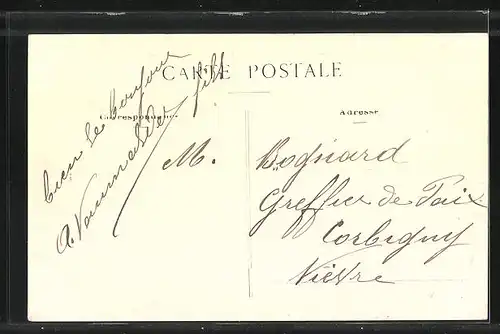 CARTE POSTALE
Correspondance
Adresse
bien le bonjour
A.
fils
M. Bognard
Greffier de Paix
Corbigny
Nièvre